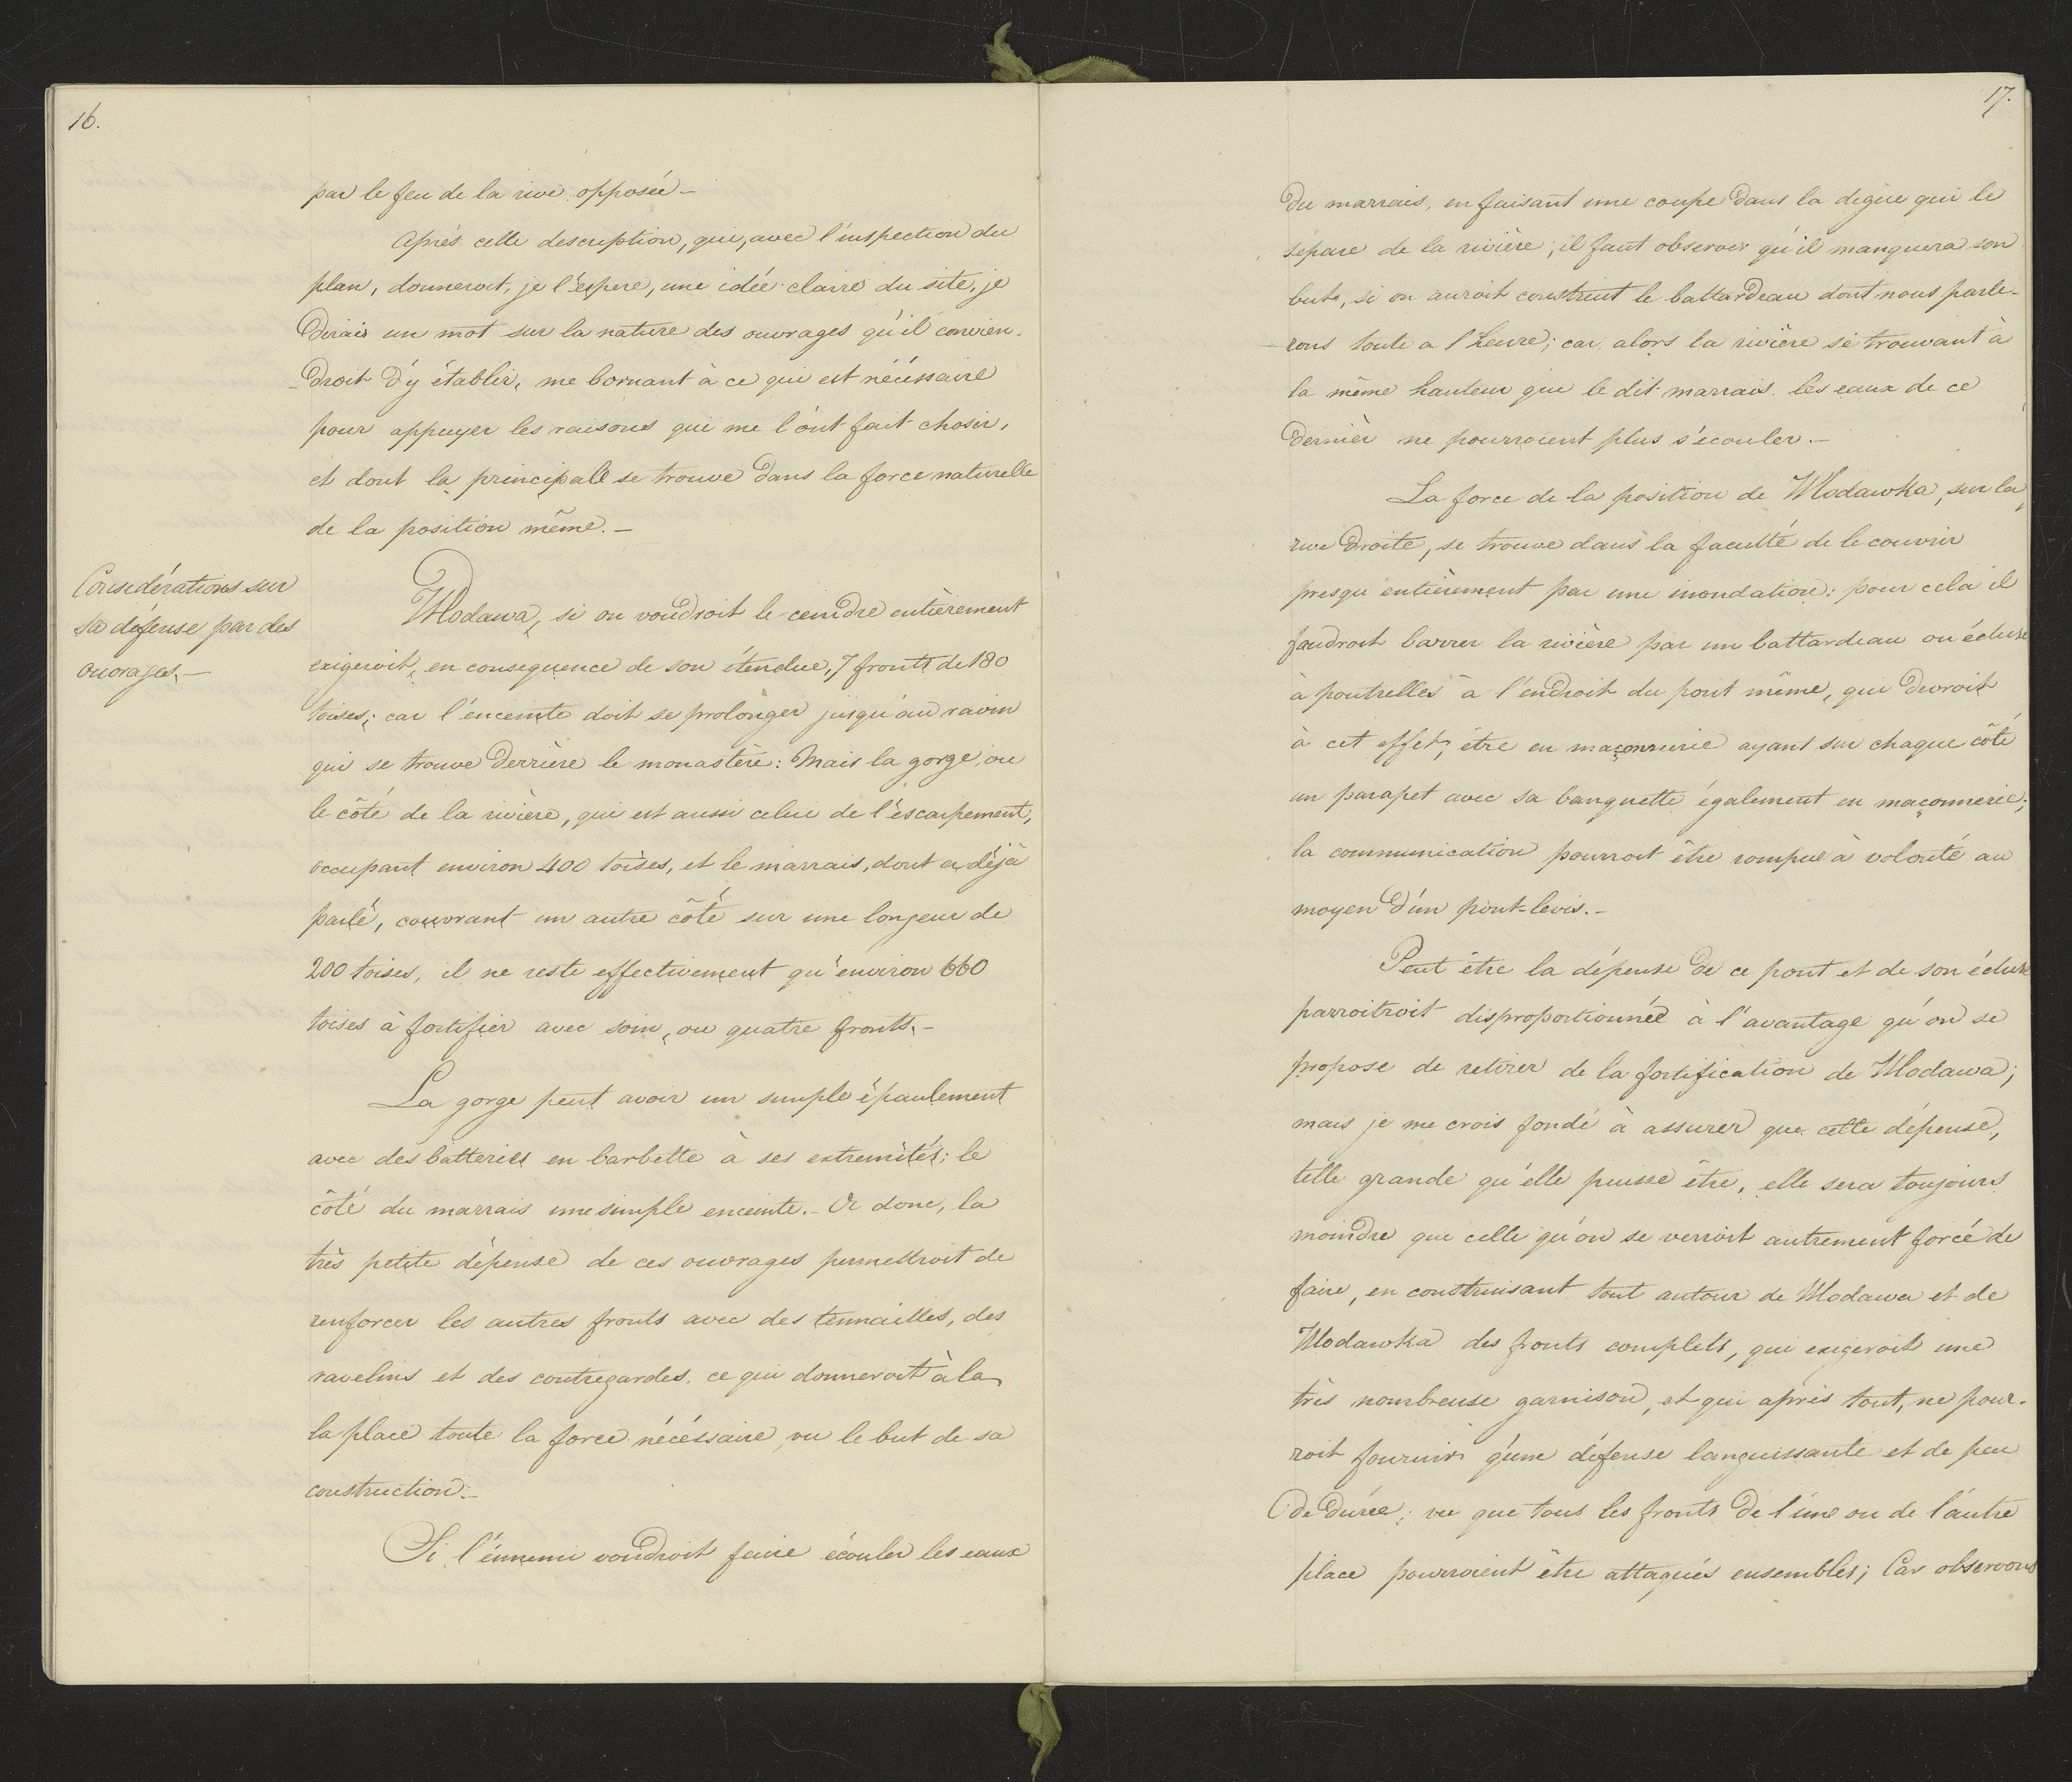 16.
par le feu de la rive opposée.-
Après celle description, qui, avec l'inspection du
plan, donneroit, je l'éspere, une idée claire du site, je
dirais un mot sur la nature des ouvrages qu'il convien-
droit d'y établir, me bornant à ce qui est nécéssaire
pour appuyer les raisons qui me l'ont fait chosir,
et dont la principale se trouve dans la force naturelle
de la position même.-
Considérations sur
sa défense par des
ouvrages.-
Wlodawa, si on voudroit le ceindre entièrement
exigeroit, en consequence de son étendue, 7 fronts de 180
toises; car l'enceinte doit se prolonger jusqu'au ravin
qui se trouve derrière le monastère: Mais la gorge, ou
le côté de la rivière, qui est aussi celui de l'éscarpement,
occupant environ 400 toises, et le marrais, dont a déjà
parlé, couvrant un autre côté sur une longeur de
200 toises, il ne reste effectivement qu'environ 660
toises à fortifier avec soin, ou quatre fronts.-
La gorge peut avoir un simple épaulement
avec des batteries en barbette à ses extremités; le
côté du marrais une simple enceinte.- Or donc, la
très petite dépense de ces ouvrages permettroit de
renforcer les autres fronts avec des tennailles, des
ravelins et des contregardes. ce qui donneroit à la
la place toute la force nécéssaire, vu le but de sa
construction.-
Si l'énnemi voudroit faire écouler les eaux
17.
du marrais, en faisant une coupe dans la digüe qui le
sépare de la rivière; il faut observer qu'il manquera son
but, si on auroit construit le battardeau dont nous parle-
rons toute a l'heure; car alors la rivière se trouvant à
la même hauteur que le dit marrais. les eaux de ce
dernièr ne pourroient plus s'ecouler.-
La force de la position de Wlodawka, sur la
rive droite, se trouve dans la faculté de le couvrir
presqu'entièrement par une inondation: pour cela il
faudroit barrer la rivière par un battardeau ou écluse
à poutrelles à l'endroit du pont même, qui devroit
à cet effet, être en maçonnerie ayant sur chaque côté
un parapet avec sa banquette également en maçonnerie;
la communication pourroit être rompue à volonté au
moyen d'un pont-levis.-
Peut être la dépense de ce pont et de son écluse
parroitroit disproportionnée à l'avantage qu'on se
propose de retirer de la fortification de Wlodawa;
mais je me crois fondé à assurer que cette dépense,
telle grande qu'elle puisse être, elle sera toujours
moindre que celle qu'on se verroit autrement forcé de
faire, en construisant tout autour de Wlodawa et de
Wlodawka des fronts complets, qui exigeroit une
très nombreuse garnison, et qui après tout, ne pour-
roit fournir q'une défense languissante et de peu
de durée; vu que tous les fronts de l'une ou de l'autre
place pourroient être attaqués ensembles; Car observons